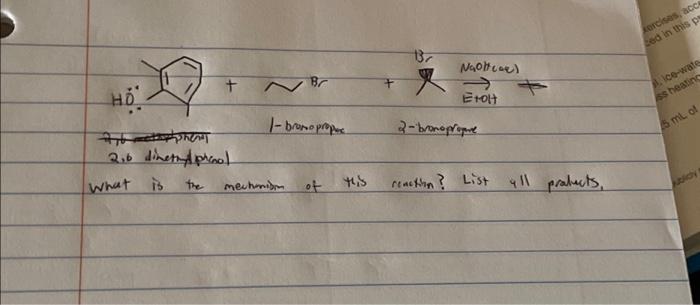 Br
NaOH(aq)
HÖ: + Br + → +
EtOH
1-bromopropane
2-bromopropane
2,6 dimethylphenol
What is the mechanism of this reaction? List all products.
xercises, acc
ced in this p
ice-wate
ss heating
5 mL of